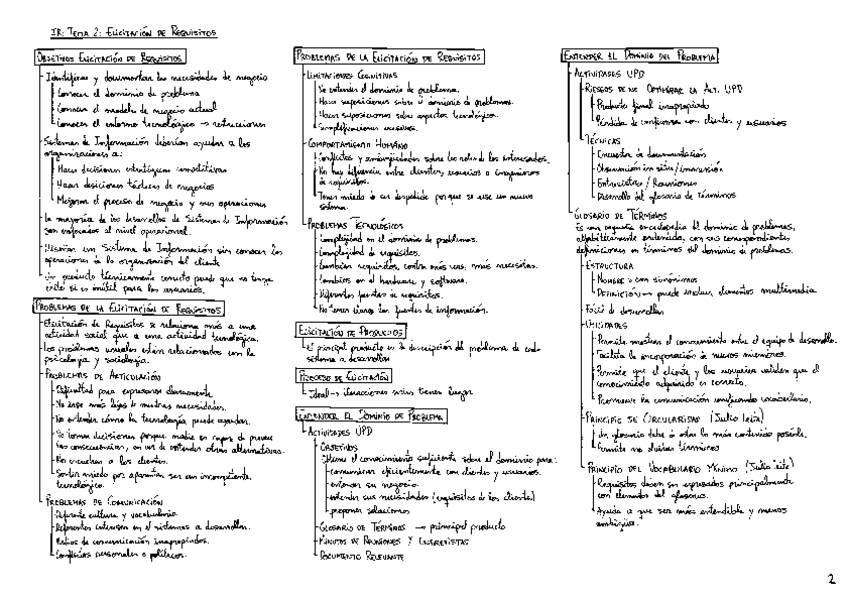 IR: TEMA 2: ELICITACIÓN DE REQUISITOS
OBJETIVOS ELICITACIÓN DE REQUISITOS
Identificar y documentar las necesidades de negocio
Conocer el dominio de problema
Conocer el modelo de negocio actual
Conocer el entorno tecnológico → restricciones
Sistemas de Información deberían ayudar a las
organizaciones a:
Hacer decisiones estratégicas competitivas
Hacer decisiones tácticas de negocios
Mejoran el proceso de negocio y sus operaciones
La mayoría de los desarrollos de Sistemas de Información
son enfocados al nivel operacional.
Diseñar un Sistema de Información sin conocer las
operaciones de la organización del cliente
Un producto técnicamente correcto puede que no tenga
éxito si es inútil para los usuarios.
PROBLEMAS DE LA ELICITACIÓN DE REQUISITOS
Elicitación de Requisitos se relaciona más a una
actividad social que a una actividad tecnológica.
Los problemas usuales están relacionados con la
psicología y sociología.
PROBLEMAS DE ARTICULACIÓN
Dificultad para expresarse claramente
No sabe más lejos de nuestras necesidades.
No entender cómo la tecnología puede ayudar.
No toman decisiones porque nadie es capaz de prever
las consecuencias, en vez de entender otras alternativas.
No escuchan a los clientes.
Sentir miedo por aparentar ser un incompetente
tecnológico.
PROBLEMAS DE COMUNICACIÓN
Diferente cultura y vocabulario.
Diferentes intereses en el sistema a desarrollar.
Medios de comunicación inapropiados.
Conflictos personales o políticos.
PROBLEMAS DE LA ELICITACIÓN DE REQUISITOS
LIMITACIONES COGNITIVAS
No entender el dominio de problema.
Hacer suposiciones sobre el dominio de problemas.
Hacer suposiciones sobre aspectos tecnológicos.
Simplificaciones excesivas.
COMPORTAMIENTO HUMANO
Conflictos y ambigüedades sobre los roles de los interesados.
No hay diferencia entre clientes, usuarios o ingenieros
de requisitos.
Tener miedo a ser despedido porque se use un nuevo
sistema.
PROBLEMAS TECNOLÓGICOS
Complejidad en el dominio de problemas.
Complejidad de requisitos.
Cambian requisitos, cuanto más veas, más necesitas.
Cambios en el hardware y software.
Diferentes fuentes de requisitos.
No tener claras las fuentes de información.
ELICITACIÓN DE PRODUCTOS
El principal producto es la descripción del problema de cada
sistema a desarrollar
PROCESO DE ELICITACIÓN
Ideal → iteraciones
ENTENDER EL DOMINIO DE PROBLEMA
ACTIVIDADES UPD
OBJETIVOS
Obtener el conocimiento suficiente sobre el dominio para:
comunicarse eficientemente con clientes y usuarios.
entender su negocio
entender sus necesidades (requisitos de los clientes)
proponer soluciones
GLOSARIO DE TÉRMINOS → principal producto
MINUTOS DE REUNIONES Y ENTREVISTAS
DOCUMENTO RELEVANTE
ENTENDER EL DOMINIO DEL PROBLEMA
ACTIVIDADES UPD
RIESGOS DE NO OPTIMIZAR LA ACT. UPD
Producto final inapropiado
Pérdida de confianza con clientes y usuarios
TÉCNICAS
Encuestar de documentación
Observación in situ/inmersión
Entrevistas / Reuniones
Desarrollo del glosario de términos
GLOSARIO DE TÉRMINOS
Es una pequeña enciclopedia del dominio de problemas,
alfabéticamente ordenada, con sus correspondientes
definiciones en términos del dominio de problemas.
ESTRUCTURA
NOMBRE > con sinónimos
DEFINICIÓN → puede incluir elementos multimedia
Fácil de desarrollar
UTILIDADES
Permite mostrar el conocimiento entre el equipo de desarrollo.
Facilita la incorporación de nuevos miembros.
Permite que el cliente y los usuarios validen que el
conocimiento adquirido es correcto.
Promueve la comunicación unificando vocabulario.
PRINCIPIO DE CIRCULARIDAD (Julio Leite)
Un glosario debe de estar lo más contenido posible.
Permite no olvidar términos
PRINCIPIO DEL VOCABULARIO MÍNIMO (Julio Leite)
Requisitos deben ser expresados principalmente
con elementos del glosario.
Ayuda a que sea más entendible y menos
ambiguo.
2